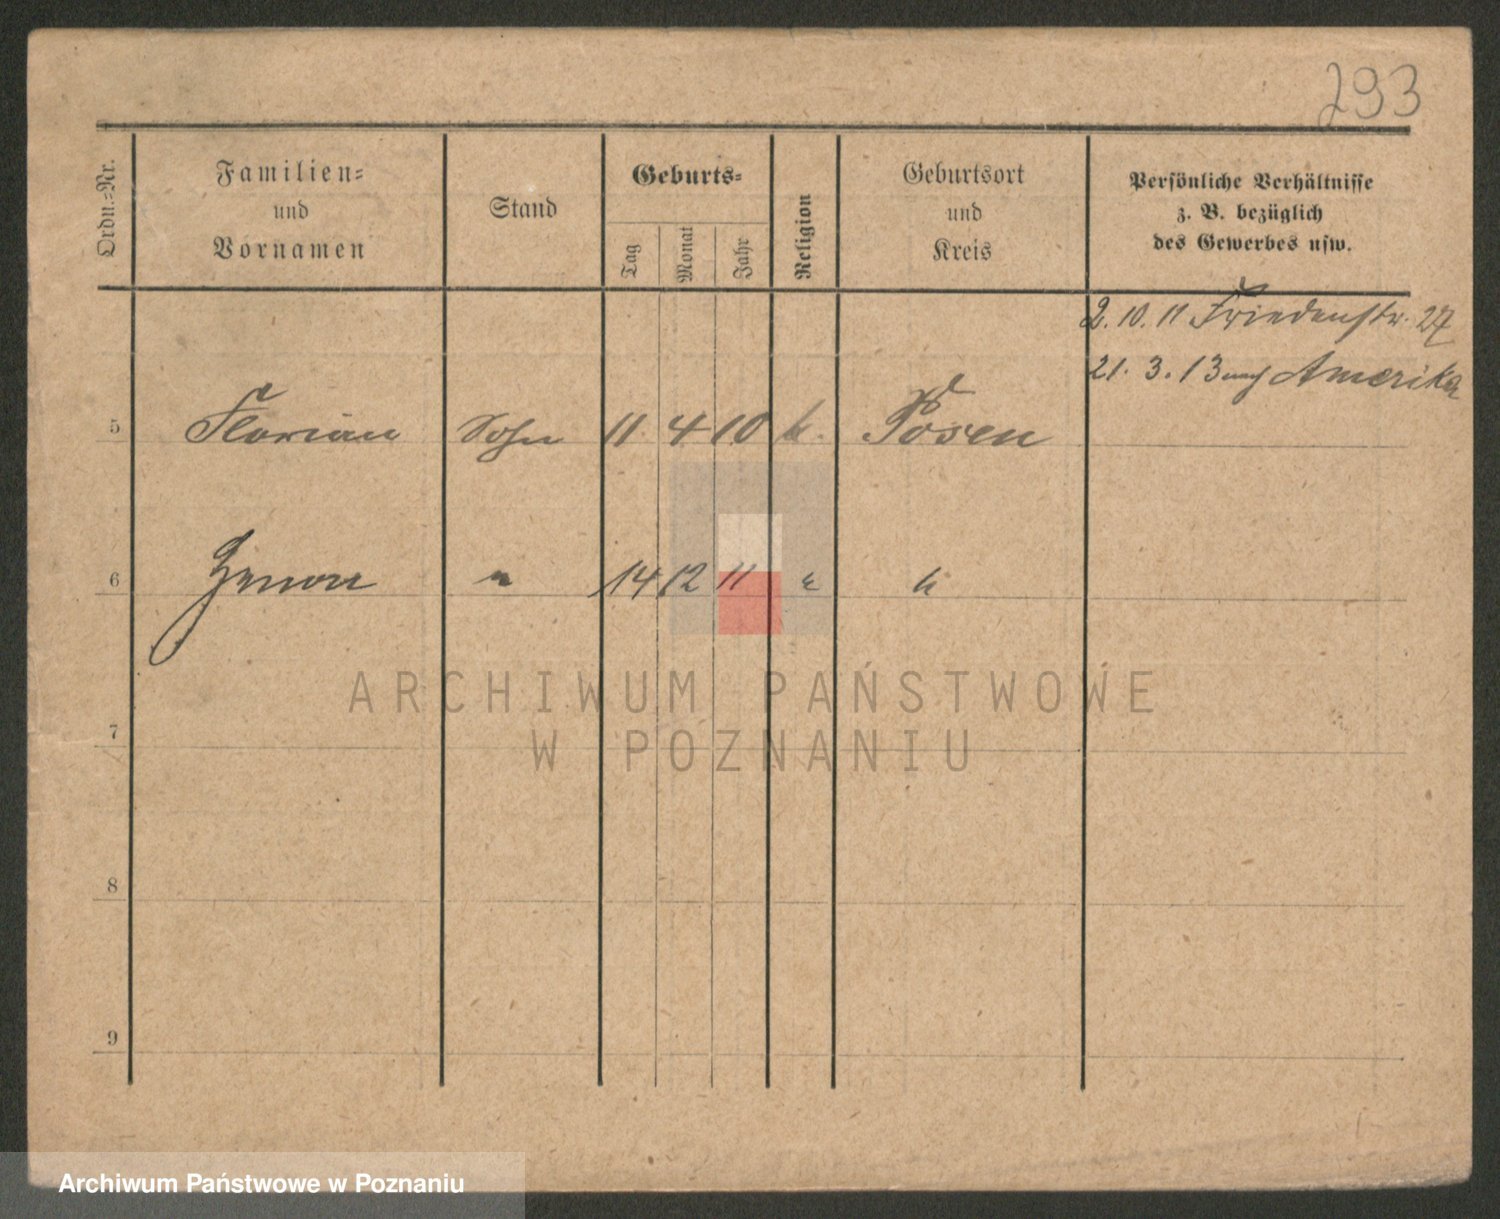 293
Ordn.-Nr.
Familien-
und
Vornamen
Stand
Geburts-
Tag
Monat
Jahr
Religion
Geburtsort
und
Kreis
Persönliche Verhältnisse
z. B. bezüglich
des Gewerbes usw.
2. 10. 11 Friedenstr. 27
21. 3. 13 nach Amerika
5 Florian Sohn 11 4 10 k. Posen
6 Zenon " 14 12 11 " "
7
8
9
ARCHIWUM PAŃSTWOWE
W POZNANIU
Archiwum Państwowe w Poznaniu